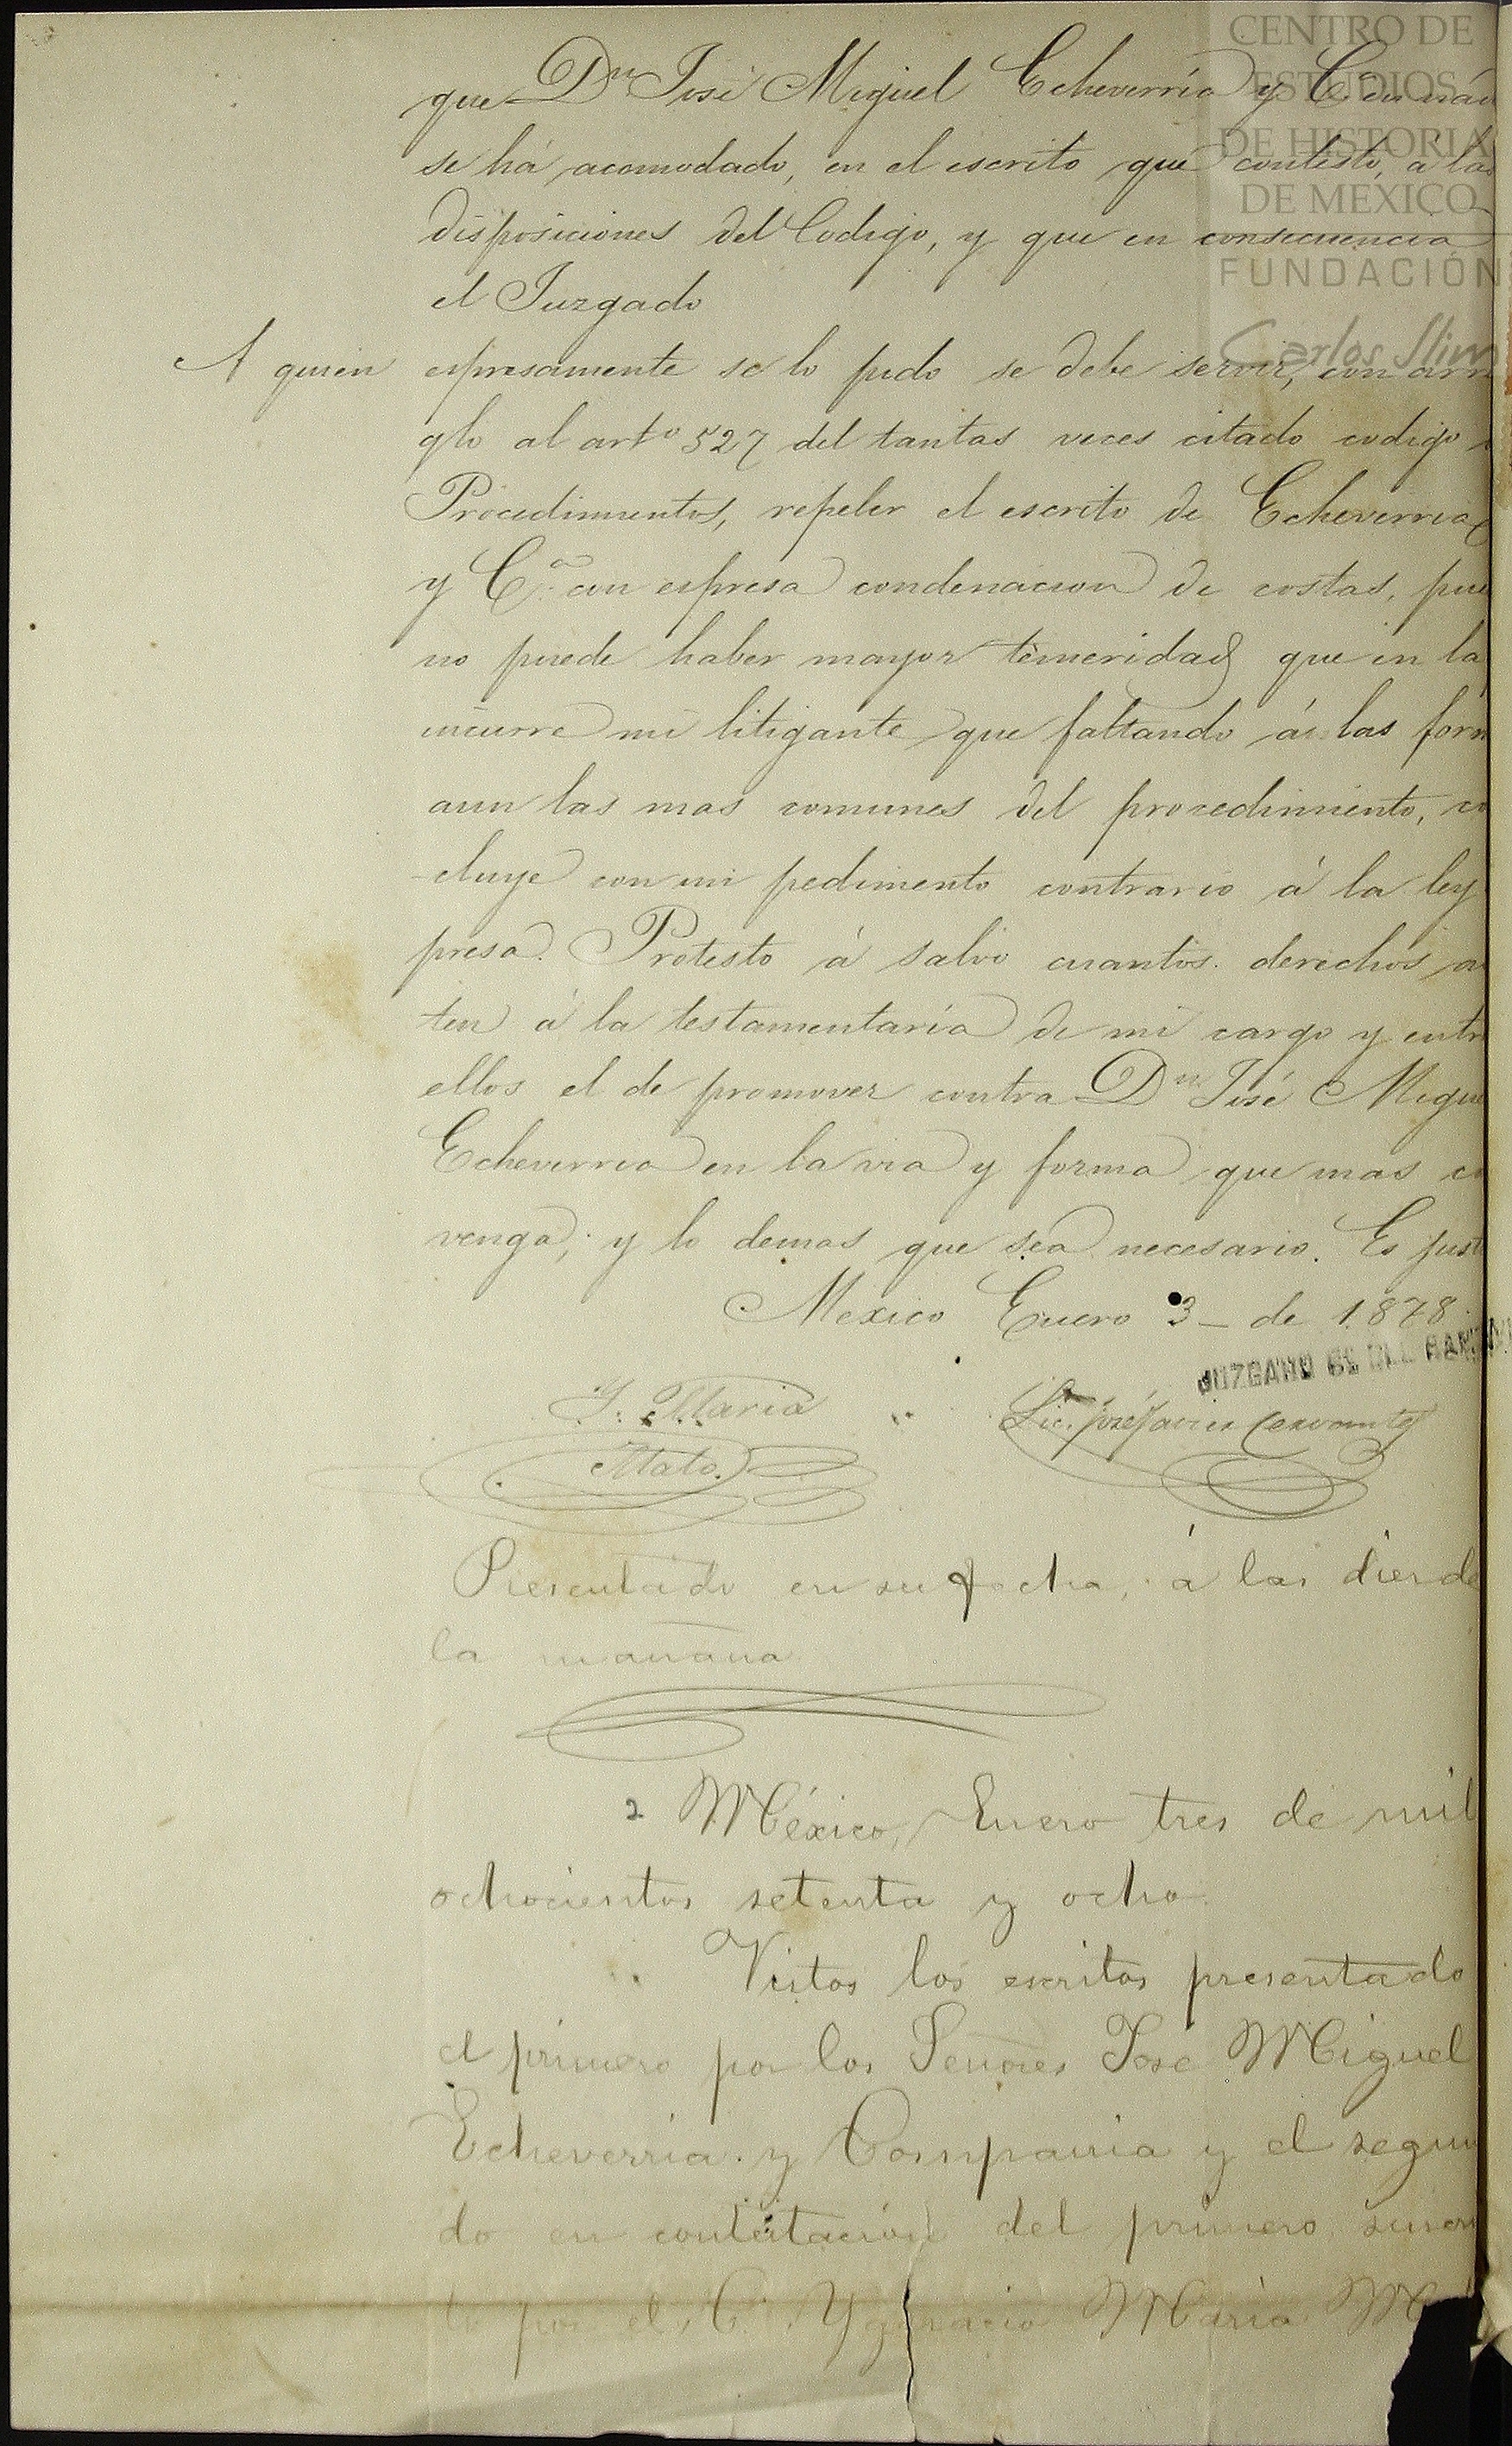 CENTRO DE
ESTUDIOS
DE HISTORIA
DE MEXICO
FUNDACIÓN
Carlos Slim
que Dn José Miguel Echeverría y Cª en nad
se há acomodado, en el escrito que contesto, a las
disposiciones del Codigo, y que en consecuencia
el Juzgado
A quien espresamente se lo pido se debe servir, con arre
glo al artº 527 del tantas veces citado codigo
Procedimientos, repeler el escrito de Echeverria
y Cª con espresa condenacion de costas, pue
no puede haber mayor temeridad que en la
incurre mi litigante que faltando á las form
aun las mas comunes del procedimiento, co
cluye con un pedimento contrario á la ley
presa. Protesto á salvo cuantos derechos a
ten á la testamentaría de mi cargo y entr
ellos el de promover contra Dn José Migue
Echeverria en la via y forma que mas co
venga; y lo demas que sea necesario. Es just
Mexico Enero 3 de 1878.
JUZGADO
Y. Maria Lic. José Javier Cervantes
Mato.
Presentado en su fecha, á las diez de
la mañana
México, Enero tres de mil
ochocientos setenta y ocho.
Vistos los escritos presentado
el primero por los Señores José Miguel
Echeverria y Compañia y el segun
do en contestación del primero suscri
to por el C. Ygnacio Maria M